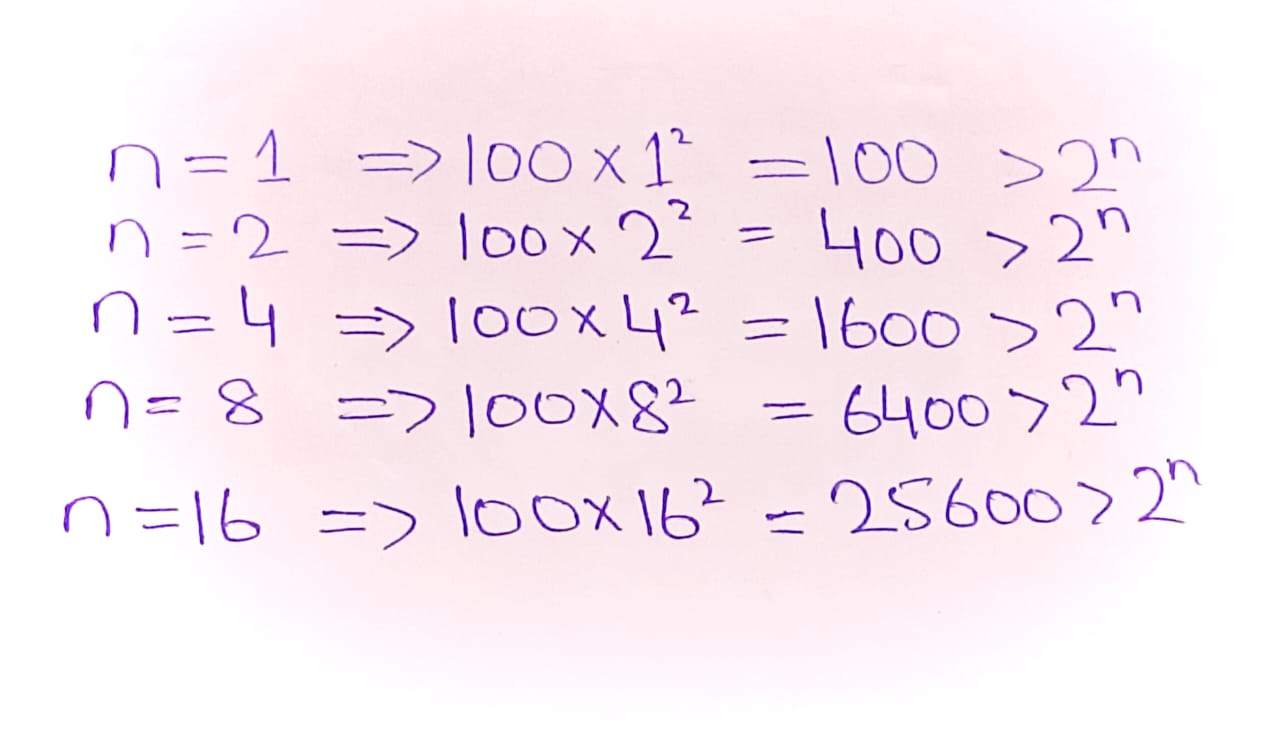 n = 1 => 100 x 1² = 100 > 2ⁿ
n = 2 => 100 x 2² = 400 > 2ⁿ
n = 4 => 100 x 4² = 1600 > 2ⁿ
n = 8 => 100 x 8² = 6400 > 2ⁿ
n = 16 => 100 x 16² = 25600 > 2ⁿ